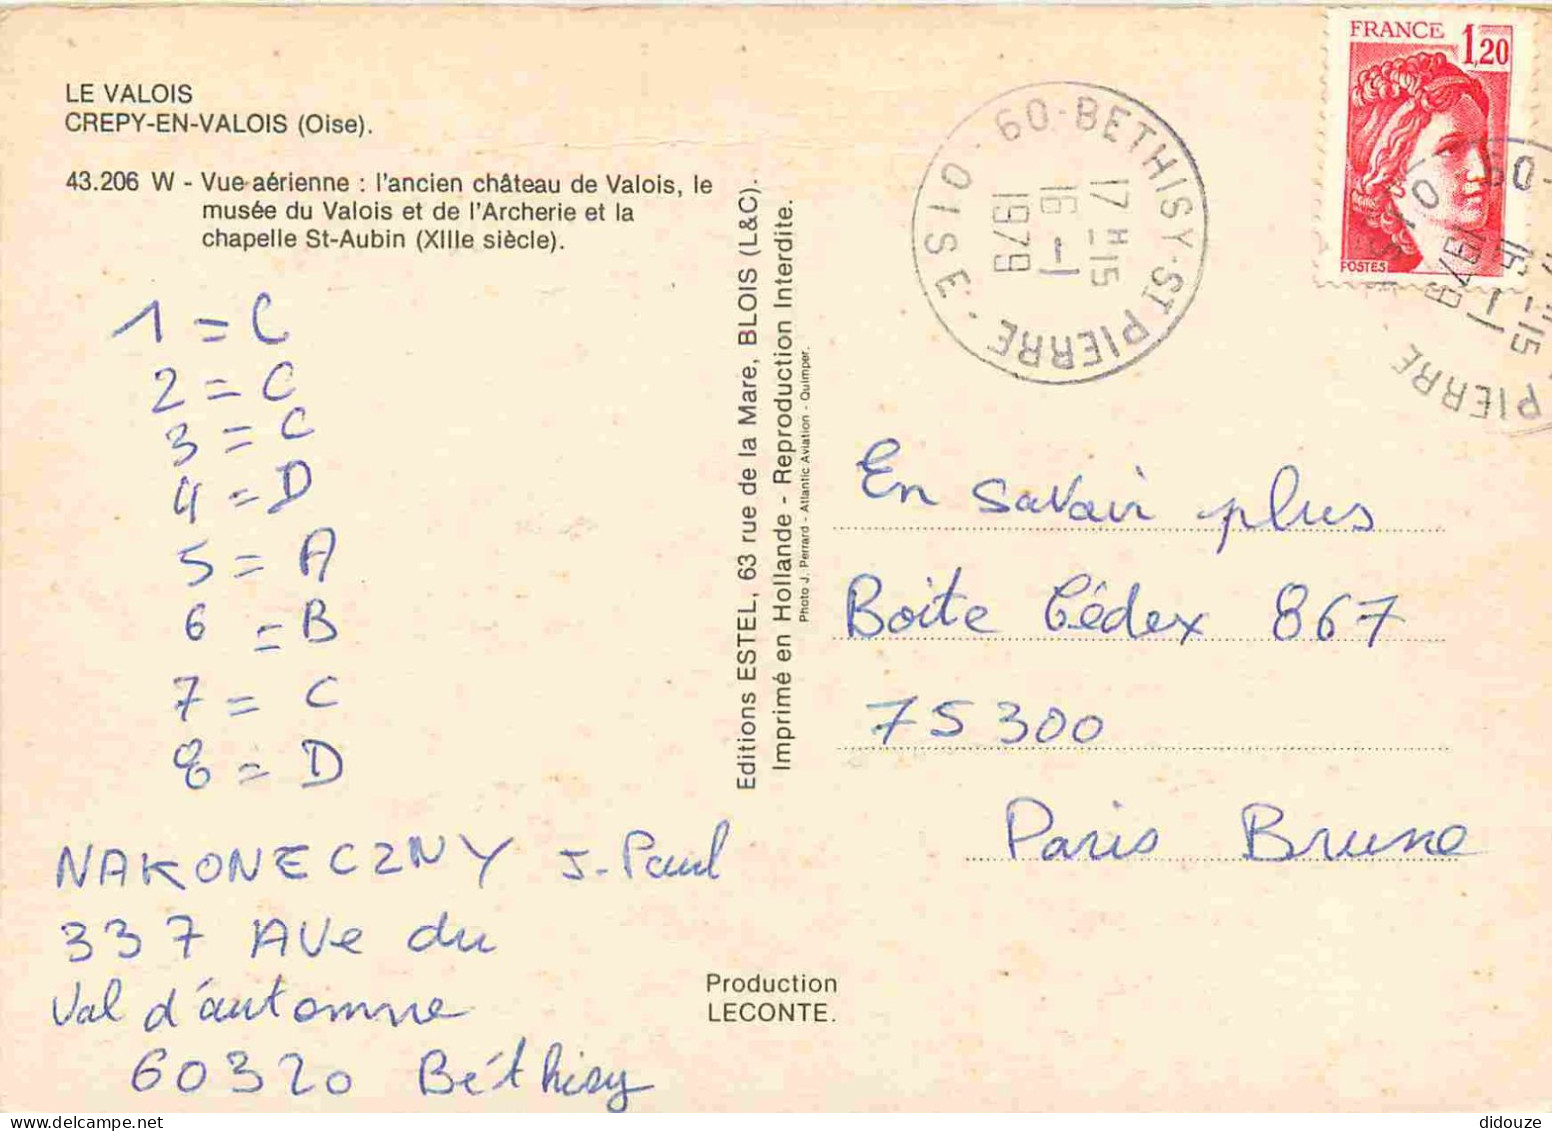 LE VALOIS
CREPY-EN-VALOIS (Oise).
43.206 W - Vue aérienne : l'ancien château de Valois, le
musée du Valois et de l'Archerie et la
chapelle St-Aubin (XIIIe siècle).
1 = C
2 = C
3 = C
4 = D
5 = A
6 = B
7 = C
8 = D
NAKONECZNY J-Paul
337 AVe du
Val d'automne
60320 Béthisy
Editions ESTEL, 63 rue de la Mare, BLOIS (L&C).
Imprimé en Hollande - Reproduction Interdite.
Photo J. Perrard - Atlantic Aviation - Quimper.
Production
LECONTE.
60-BETHISY-ST PIERRE - OISE -
17H-15
16-1
1979
FRANCE 1,20
POSTES
60-
OIS
17H-15
16-1
1979
PIERRE
En savoir plus
Boite Cédex 867
75300
Paris Brune
didouze